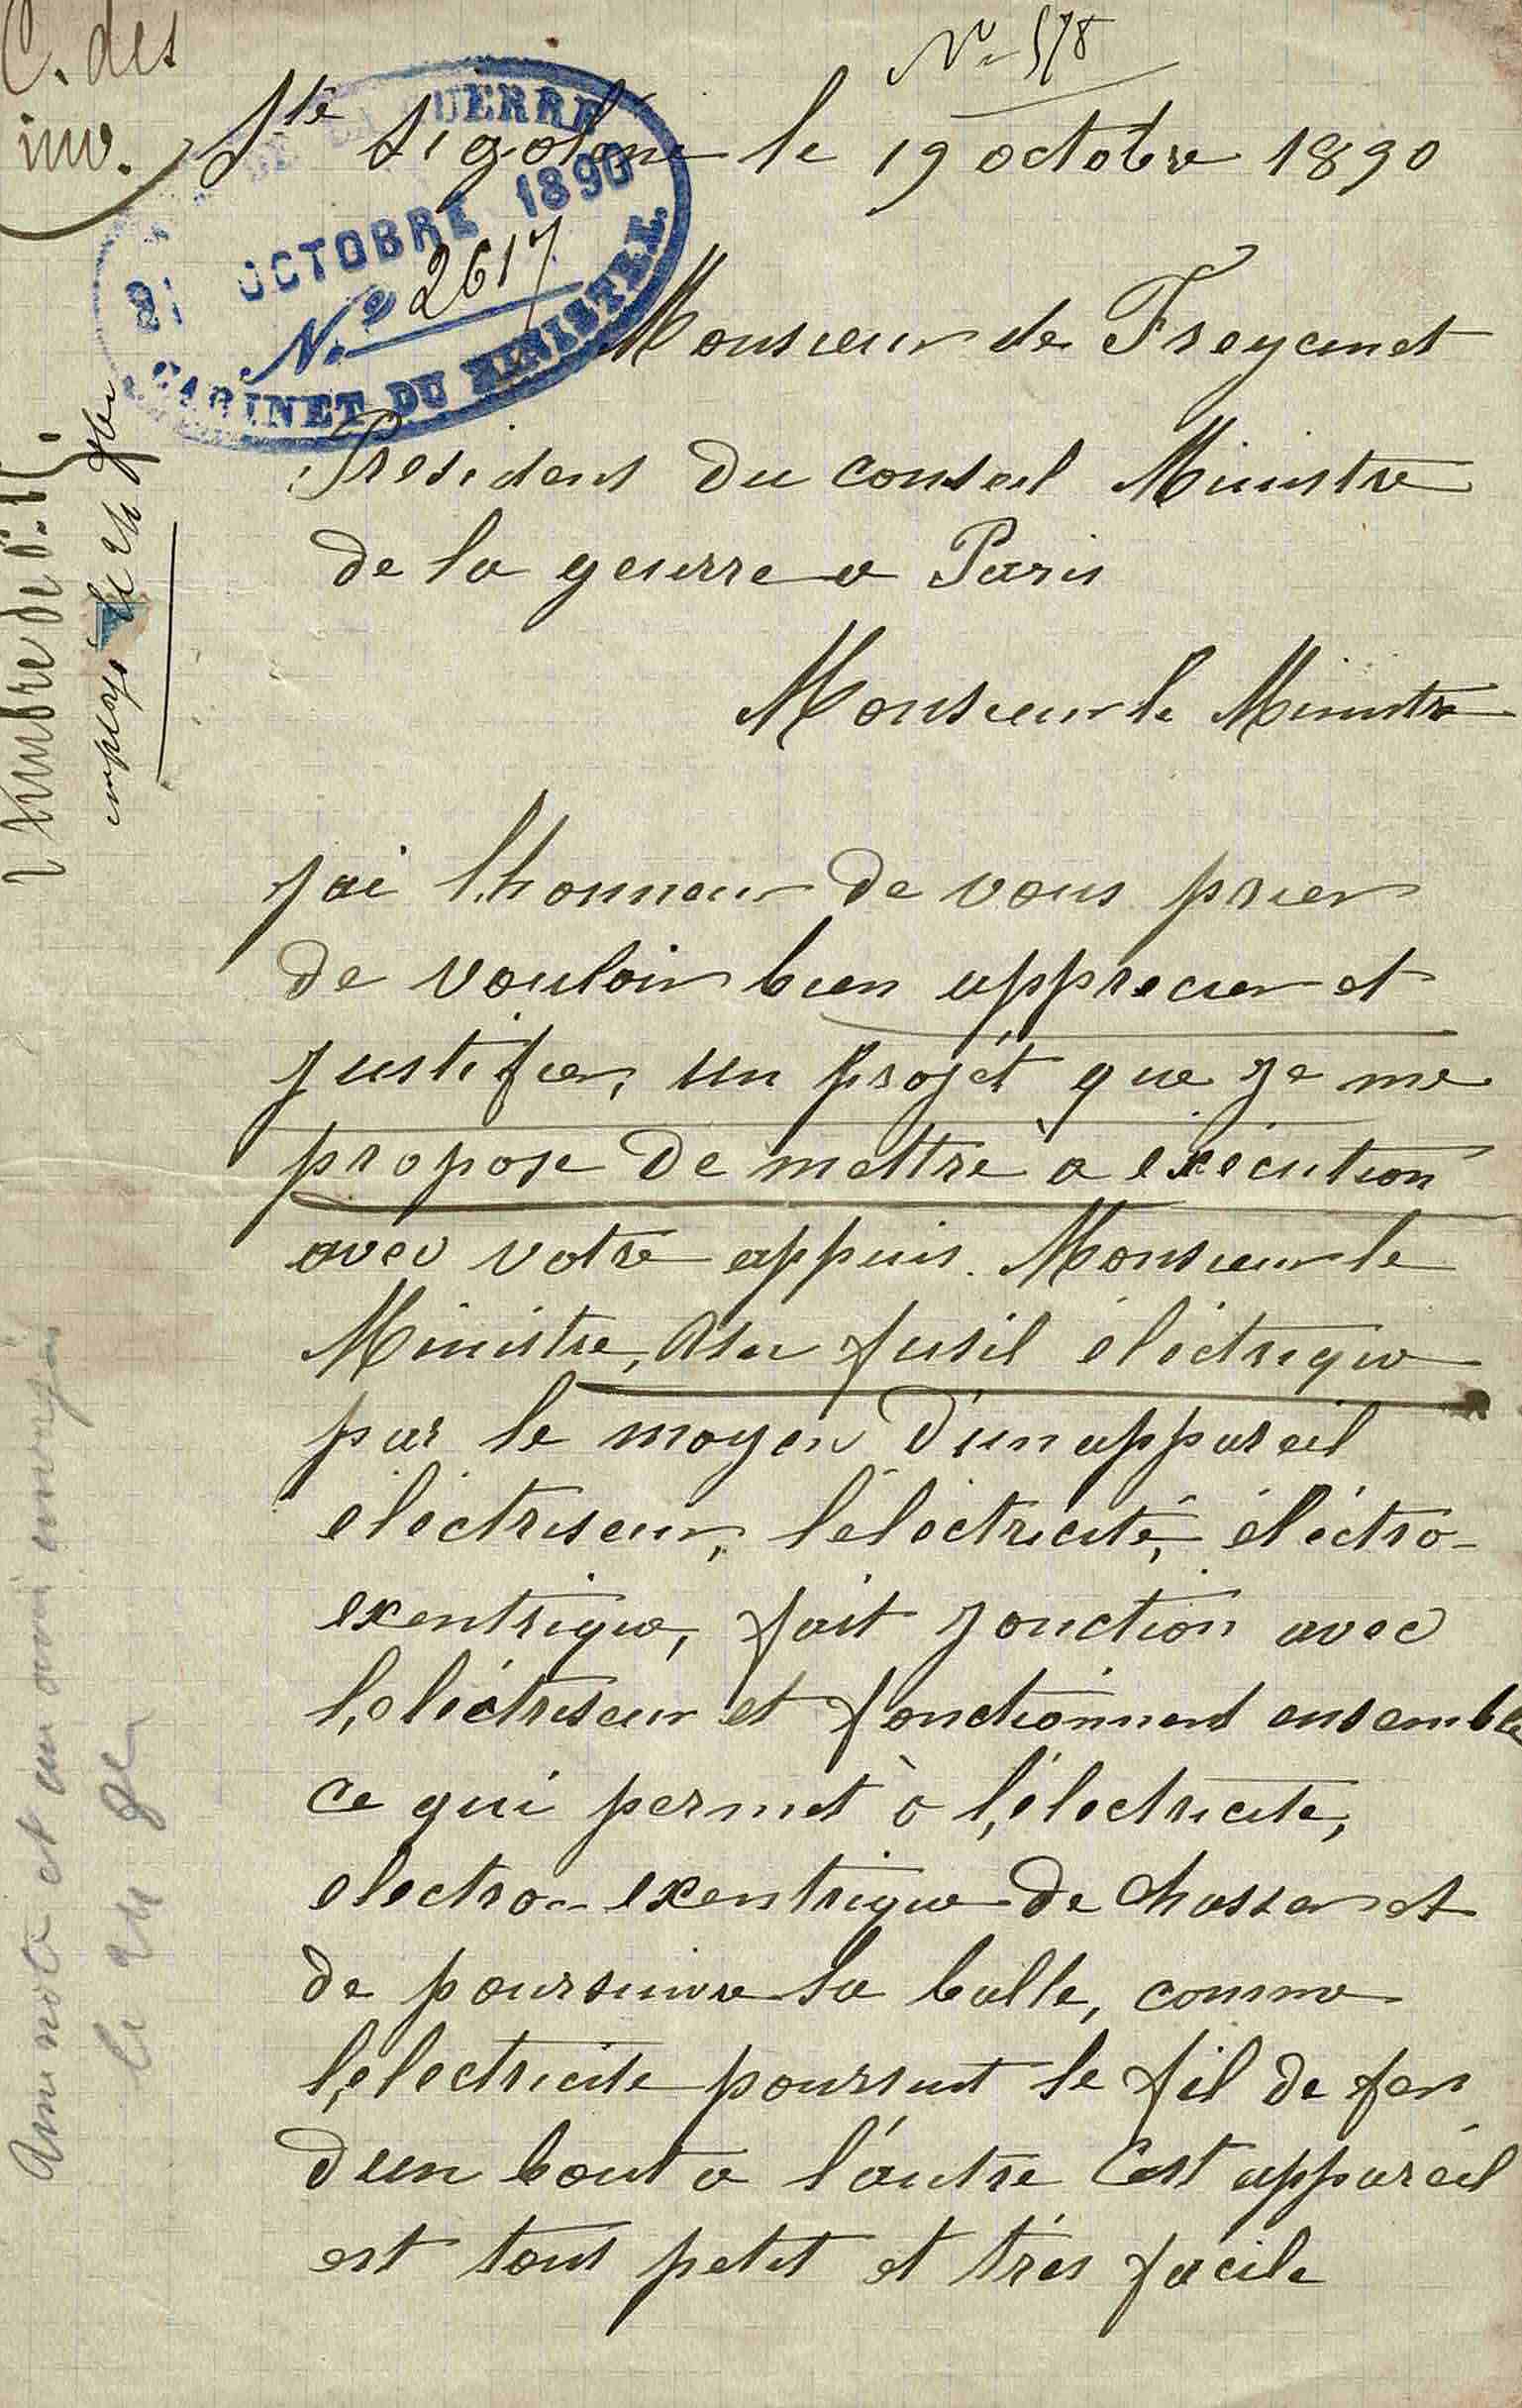 C. des
inv.
N° 578
Ste Sigolène le 19 octobre 1890
GUERRE
21 OCTOBRE 1890
N° 2617
CABINET DU MINISTRE
Monsieur de Freycinet
President du conseil Ministre
de la geuerre a Paris
Monsieur le Ministre
J'ai l'honneur de vous prier
de vouloir bien apprecier et
justifier, un projét que je me
propose de mettre à exécution
avec votre appuis. Monsieur le
Ministre, fusil éléctrique
par le moyen d'un appareil
eléctriseur, l'eléctricité, éléctro-
exentrique, fait jonction avec
l,eléctriseur et fonctionnent ensemble
ce qui permet à l,électricite,
electro-exentrique de chasser et
de poursuivre la balle, comme
l,electricite poursuit le fil de fer
d'un bout a l'autre Cest appareil
est tout petit et très facile
timbre de
envoyé le 24